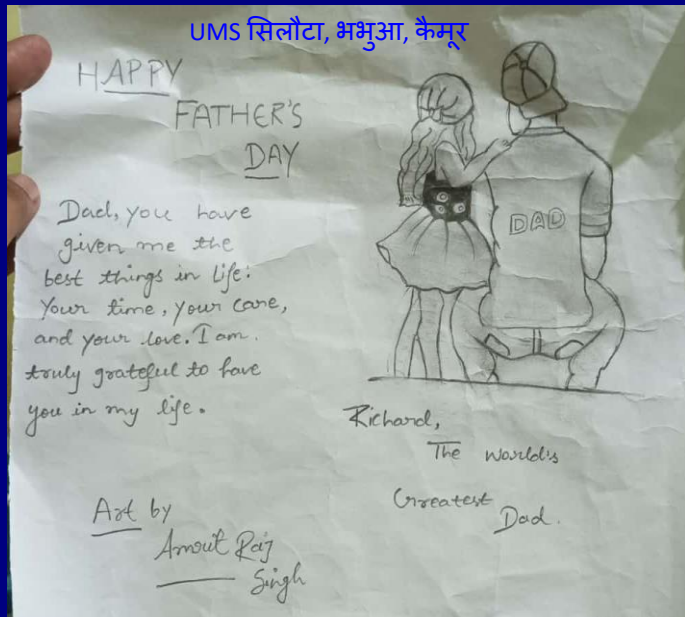 UMS सिलौटा, भभुआ, कैमूर
HAPPY
FATHER'S
DAY
Dad, you have
given me the
best things in life:
Your time, your care,
and your love. I am.
truly grateful to have
you in my life.
DAD
Richard,
The World's
Greatest
Dad.
Art by
Amrit Raj
Singh